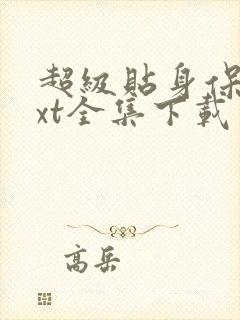 超級貼身保
xt全集下載
高岳